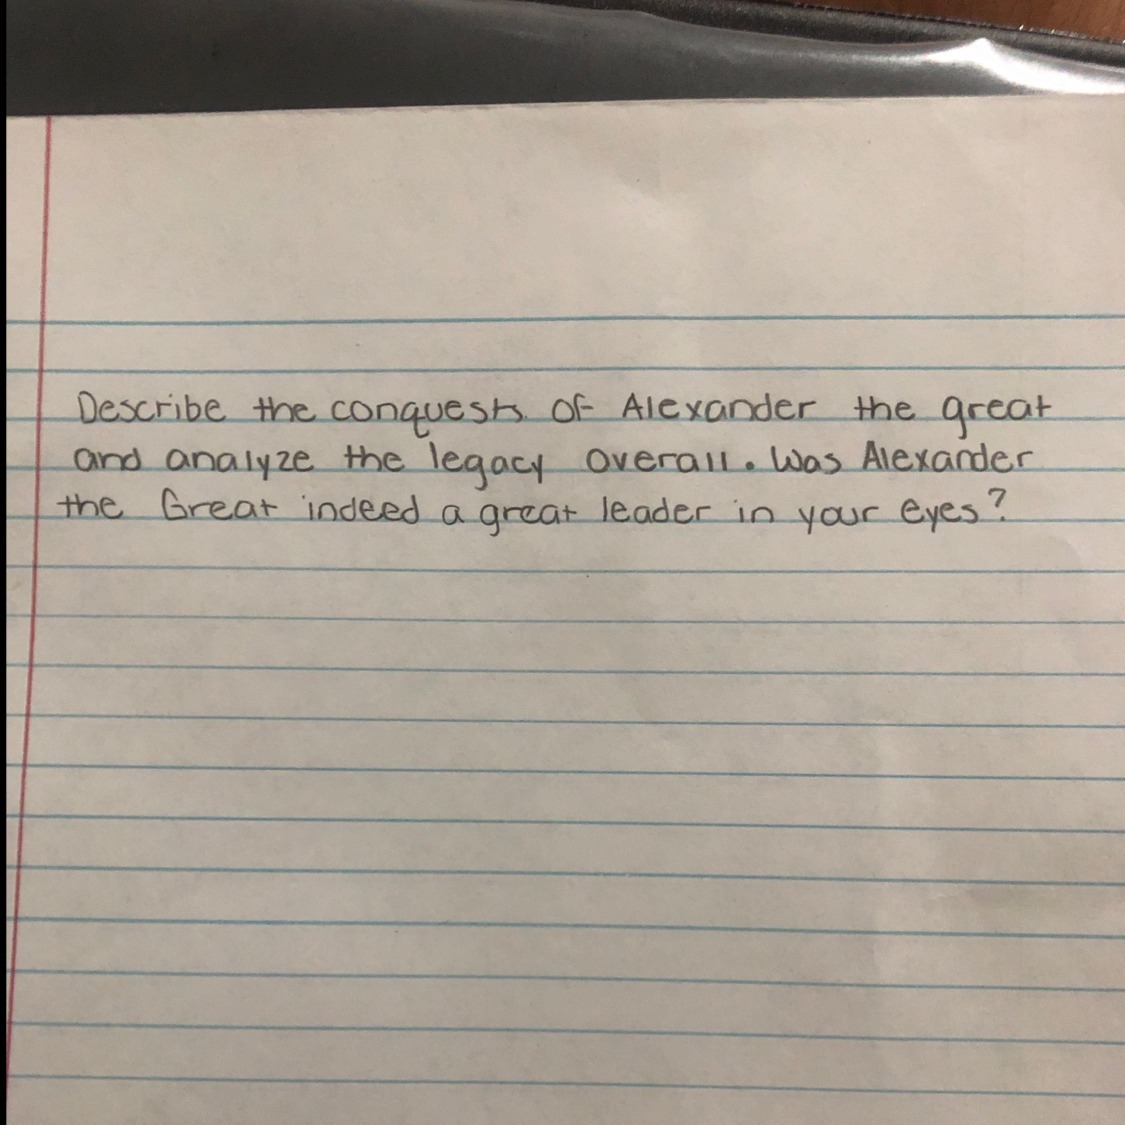 Describe the conquests of Alexander the great
and analyze the legacy overall. Was Alexander
the Great indeed a great leader in your eyes?